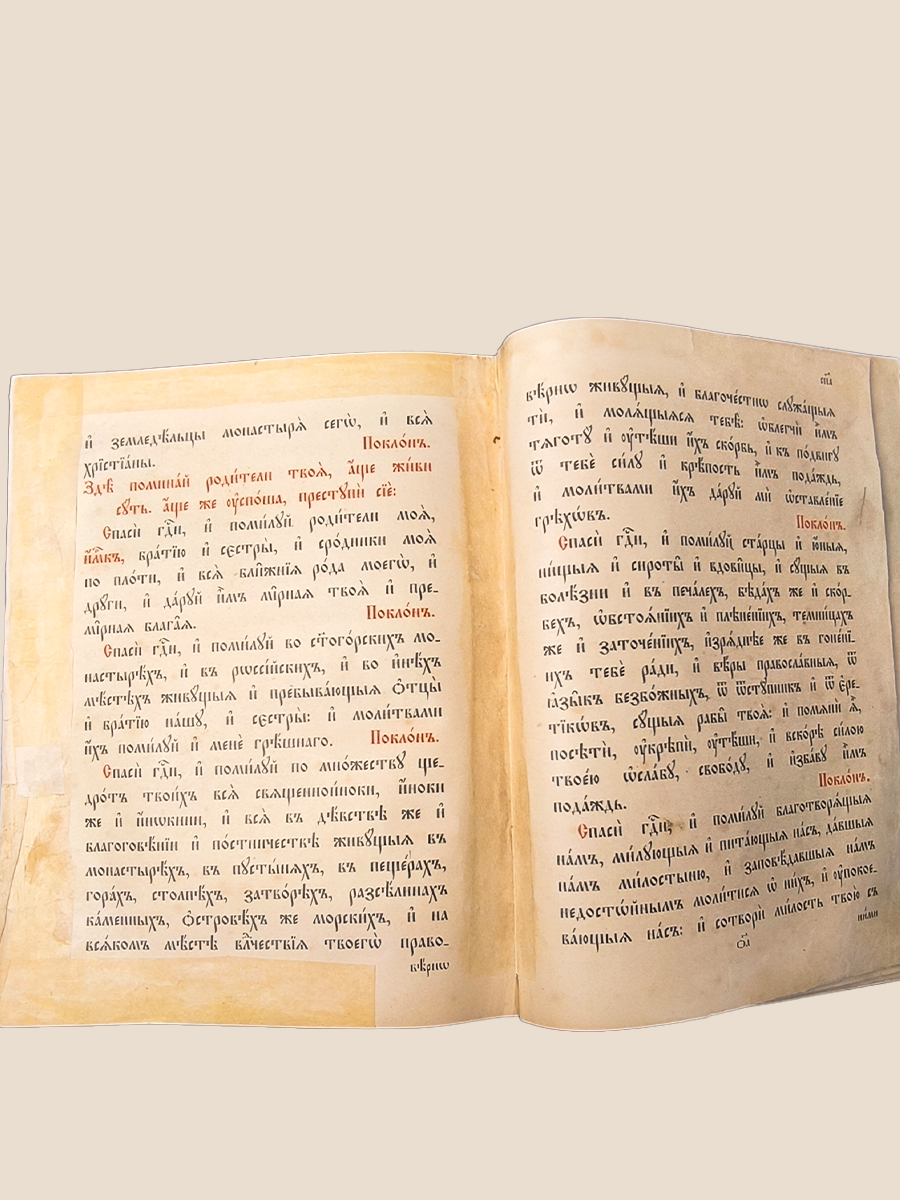 и҆ земледѣ́льцы монастырѧ̀ сегѡ̀, и҆ всѧ̀
хрїстїа́ны. Покло́нъ.
Здѣ̀ помина́й роди́тели твоѧ̀, а҆́ще жи́ви
сꙋть. а҆́ще же ᲂу҆спо́ша, престꙋпѝ сїѐ:
Спасѝ гдⷭ҇и, и҆ поми́лꙋй роди́тели моѧ̀,
и҆́мⷬ҇къ, бра́тїю и҆ сєстры̀, и҆ сро́дники моѧ̀
по пло́ти, и҆ всѧ̀ бли̑жнїѧ ро́да моегѡ̀, и҆
дрꙋ́ги, и҆ да́рꙋй и҆̀мъ ми̑рнаѧ твоѧ̀ и҆ пре-
ми̑рнаѧ блага̑ѧ. Покло́нъ.
Спасѝ гдⷭ҇и, и҆ поми́лꙋй во ст҃ого́рскихъ мо-
настырѣ́хъ, и҆ въ рѡссі́йскихъ, и҆ во и҆нѣ́хъ
мѣ́стѣхъ живꙋ́щыѧ и҆ пребыва́ющыѧ ѻ҆тцы̀
и҆ бра́тїю на́шꙋ, и҆ сєстры̀: и҆ моли́твами
и҆́хъ поми́лꙋй и҆ менѐ грѣ́шнаго. Покло́нъ.
Спасѝ гдⷭ҇и, и҆ поми́лꙋй по мно́жествꙋ ще-
дро́тъ твои́хъ всѧ̀ свѧщенноино́ки, и҆но́ки
же и҆ и҆нѡ́кини, и҆ всѧ̀ въ дѣ́вствѣ же и҆
благоговѣ́нїи и҆ по́стничествѣ живꙋ́щыѧ въ
монастырѣ́хъ, въ пꙋсты́нѧхъ, въ пеще́рахъ,
гора́хъ, столпѣ́хъ, затво́рѣхъ, разсѣ́линахъ
ка́менныхъ, ѻ҆́стровѣхъ же морски́хъ, и҆ на
всѧ́комъ мѣ́стѣ влⷣчествїѧ твоегѡ̀ право-
вѣ́рнѡ
сп҃а
вѣ́рнѡ живꙋ́щыѧ, и҆ благоче́стнѡ слꙋжа́щыѧ
тѝ, и҆ молѧ́щыѧсѧ тебѣ̀: ѡ҆блегчѝ и҆̀мъ
тѧготꙋ̀ и҆ ᲂу҆тѣ́ши и҆́хъ ско́рбь, и҆ къ по́двигꙋ
ѿ тебѐ си́лꙋ и҆ крѣ́пость и҆̀мъ пода́ждь,
и҆ моли́твами и҆́хъ да́рꙋй мѝ ѡ҆ставле́нїе
грѣхѡ́въ. Покло́нъ.
Спасѝ гдⷭ҇и, и҆ поми́лꙋй ста́рцы и҆ ю҆́ныѧ,
ни́щыѧ и҆ сироты̑ и҆ вдови̑цы, и҆ сꙋ́щыѧ въ
болѣ́зни и҆ въ печа́лехъ, бѣда́хъ же и҆ ско́р-
бехъ, ѡ҆бстоѧ́нїихъ и҆ плѣне́нїихъ, темни́цахъ
же и҆ заточе́нїихъ, и҆зрѧ́днѣе же въ гоне́нї-
ихъ тебѐ ра́ди, и҆ вѣ́ры правосла́вныѧ, ѿ
ꙗ҆зы̑къ безбо́жныхъ, ѿ ѿстꙋ̑пникъ и҆ ѿ є҆ре-
тїкѡ́въ, сꙋ́щыѧ рабы̑ твоѧ̑: и҆ помѧнѝ ѧ҆̀,
посѣтѝ, ᲂу҆крѣпѝ, ᲂу҆тѣ́ши, и҆ вско́рѣ си́лою
твое́ю ѡ҆сла́бꙋ, свобо́дꙋ, и҆ и҆зба́вꙋ и҆̀мъ
пода́ждь. Покло́нъ.
Спасѝ гдⷭ҇и, и҆ поми́лꙋй благотворѧ́щыѧ
на́мъ, ми́лꙋющыѧ и҆ пита́ющыѧ на́съ, да́вшыѧ
на́мъ ми́лостыню, и҆ заповѣ́давшыѧ на́мъ
недостѡ́йнымъ моли́тисѧ ѡ҆ ни́хъ, и҆ ᲂу҆покое-
ва́ющыѧ на́съ: и҆ сотворѝ ми́лость твою̀ съ
ни́ми
ѻ҃а